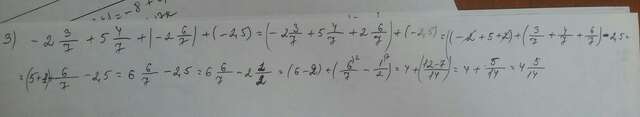 3) -2 3/7 + 5 4/7 + |-2 6/7| + (-2,5) = (-2 3/7 + 5 4/7 + 2 6/7) + (-2,5) = ((-2+5+2) + (3/7 + 4/7 + 6/7) - 2,5 =
= (5+1) 6/7 - 2,5 = 6 6/7 - 2,5 = 6 6/7 - 2 1/2 = (6-2) + (6/7 - 1/2) = 4 + (12-7/14) = 4 + 5/14 = 4 5/14